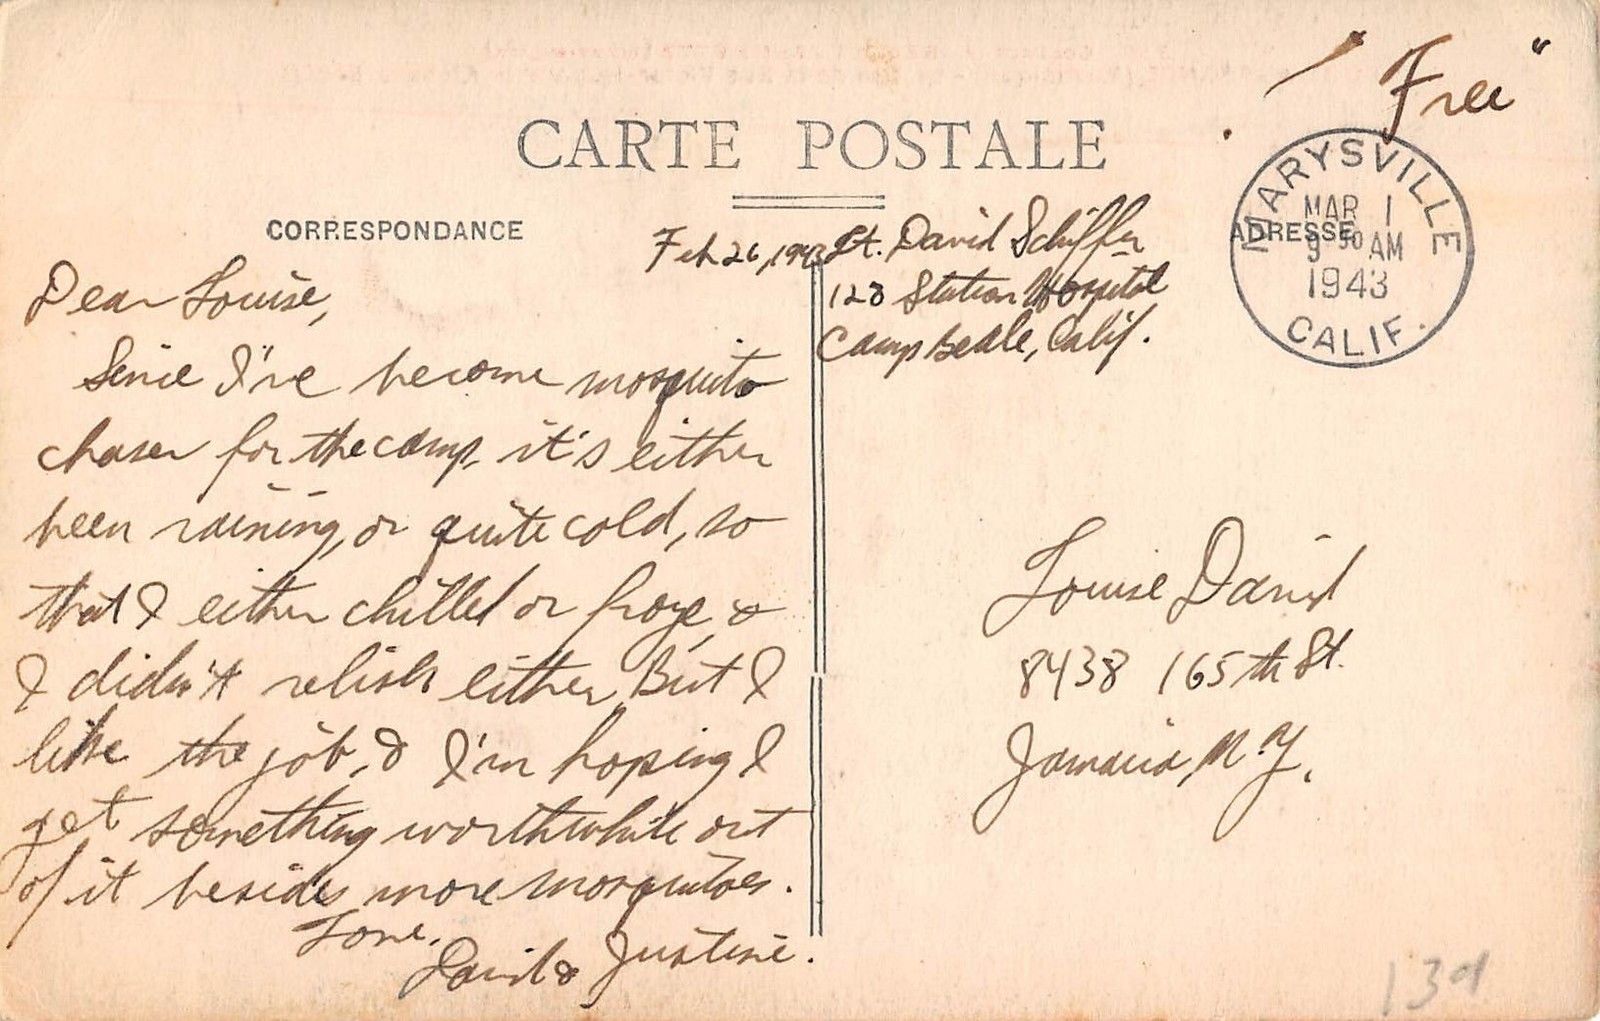 "Free"
CARTE POSTALE
MARYSVILLE
MAR 1
9 30 AM
1943
CALIF.
CORRESPONDANCE
ADRESSE
Feb 26, 1943
Lt. David Schiffer
128 Station Hospital
Camp Beale, Calif.
Dear Louise,
Since I've become mosquito
chaser for the camp, it's either
been raining, or quite cold, so
that I either chilled or froze, &
I didn't relish either. But I
like the job, & I'm hoping I
get something worthwhile out
of it besides more mosquitoes.
Love,
David & Justine.
Louise David
8438 165th St.
Jamaica, N.Y.